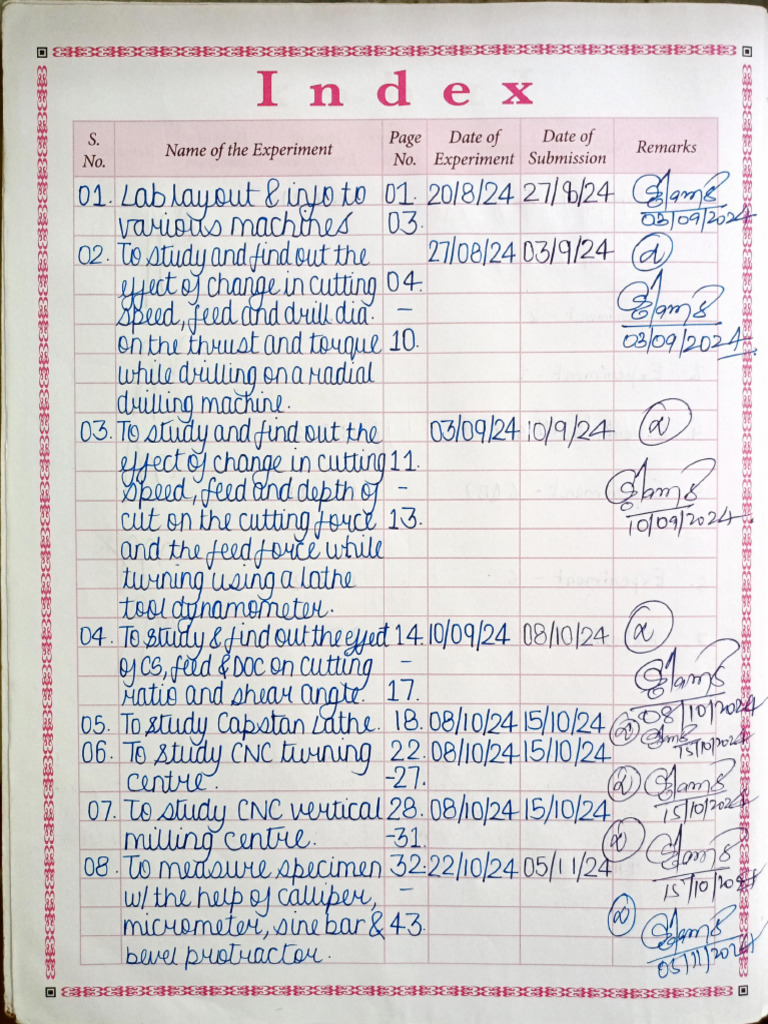 Index
S. No. Name of the Experiment Page No. Date of Experiment Date of Submission Remarks
01. Lab layout & info to 01. 20/8/24 27/8/24
various machines 03. 03/09/2024
02. To study and find out the 27/08/24 03/9/24
effect of change in cutting 04.
speed, feed and drill dia. -
on the thrust and torque 10. 03/09/2024
while drilling on a radial
drilling machine.
03. To study and find out the 03/09/24 10/9/24
effect of change in cutting 11.
speed, feed and depth of -
cut on the cutting force 13. 10/09/2024
and the feed force while
turning using a lathe
tool dynamometer.
04. To study & find out the effect 14. 10/09/24 08/10/24
of CS, feed & DOC on cutting -
ratio and shear angle. 17. 08/10/2024
05. To study Capstan Lathe. 18. 08/10/24 15/10/24 15/10/2024
06. To study CNC turning 22. 08/10/24 15/10/24
centre. -27. 15/10/2024
07. To study CNC vertical 28. 08/10/24 15/10/24
milling centre. -31. 15/10/2024
08. To measure specimen 32. 22/10/24 05/11/24
w/ the help of calliper, -
micrometer, sine bar & 43.
bevel protractor. 05/11/2024